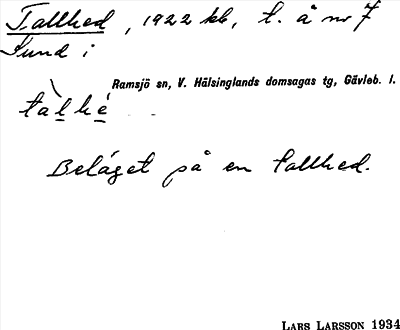 Tallhed, 1922 kb, t. å nr 7
Sund i
Ramsjö sn, V. Hälsinglands domsagas tg, Gävleb. l.
tàlhé
Beläget på en tallhed.
LARS LARSSON 1934